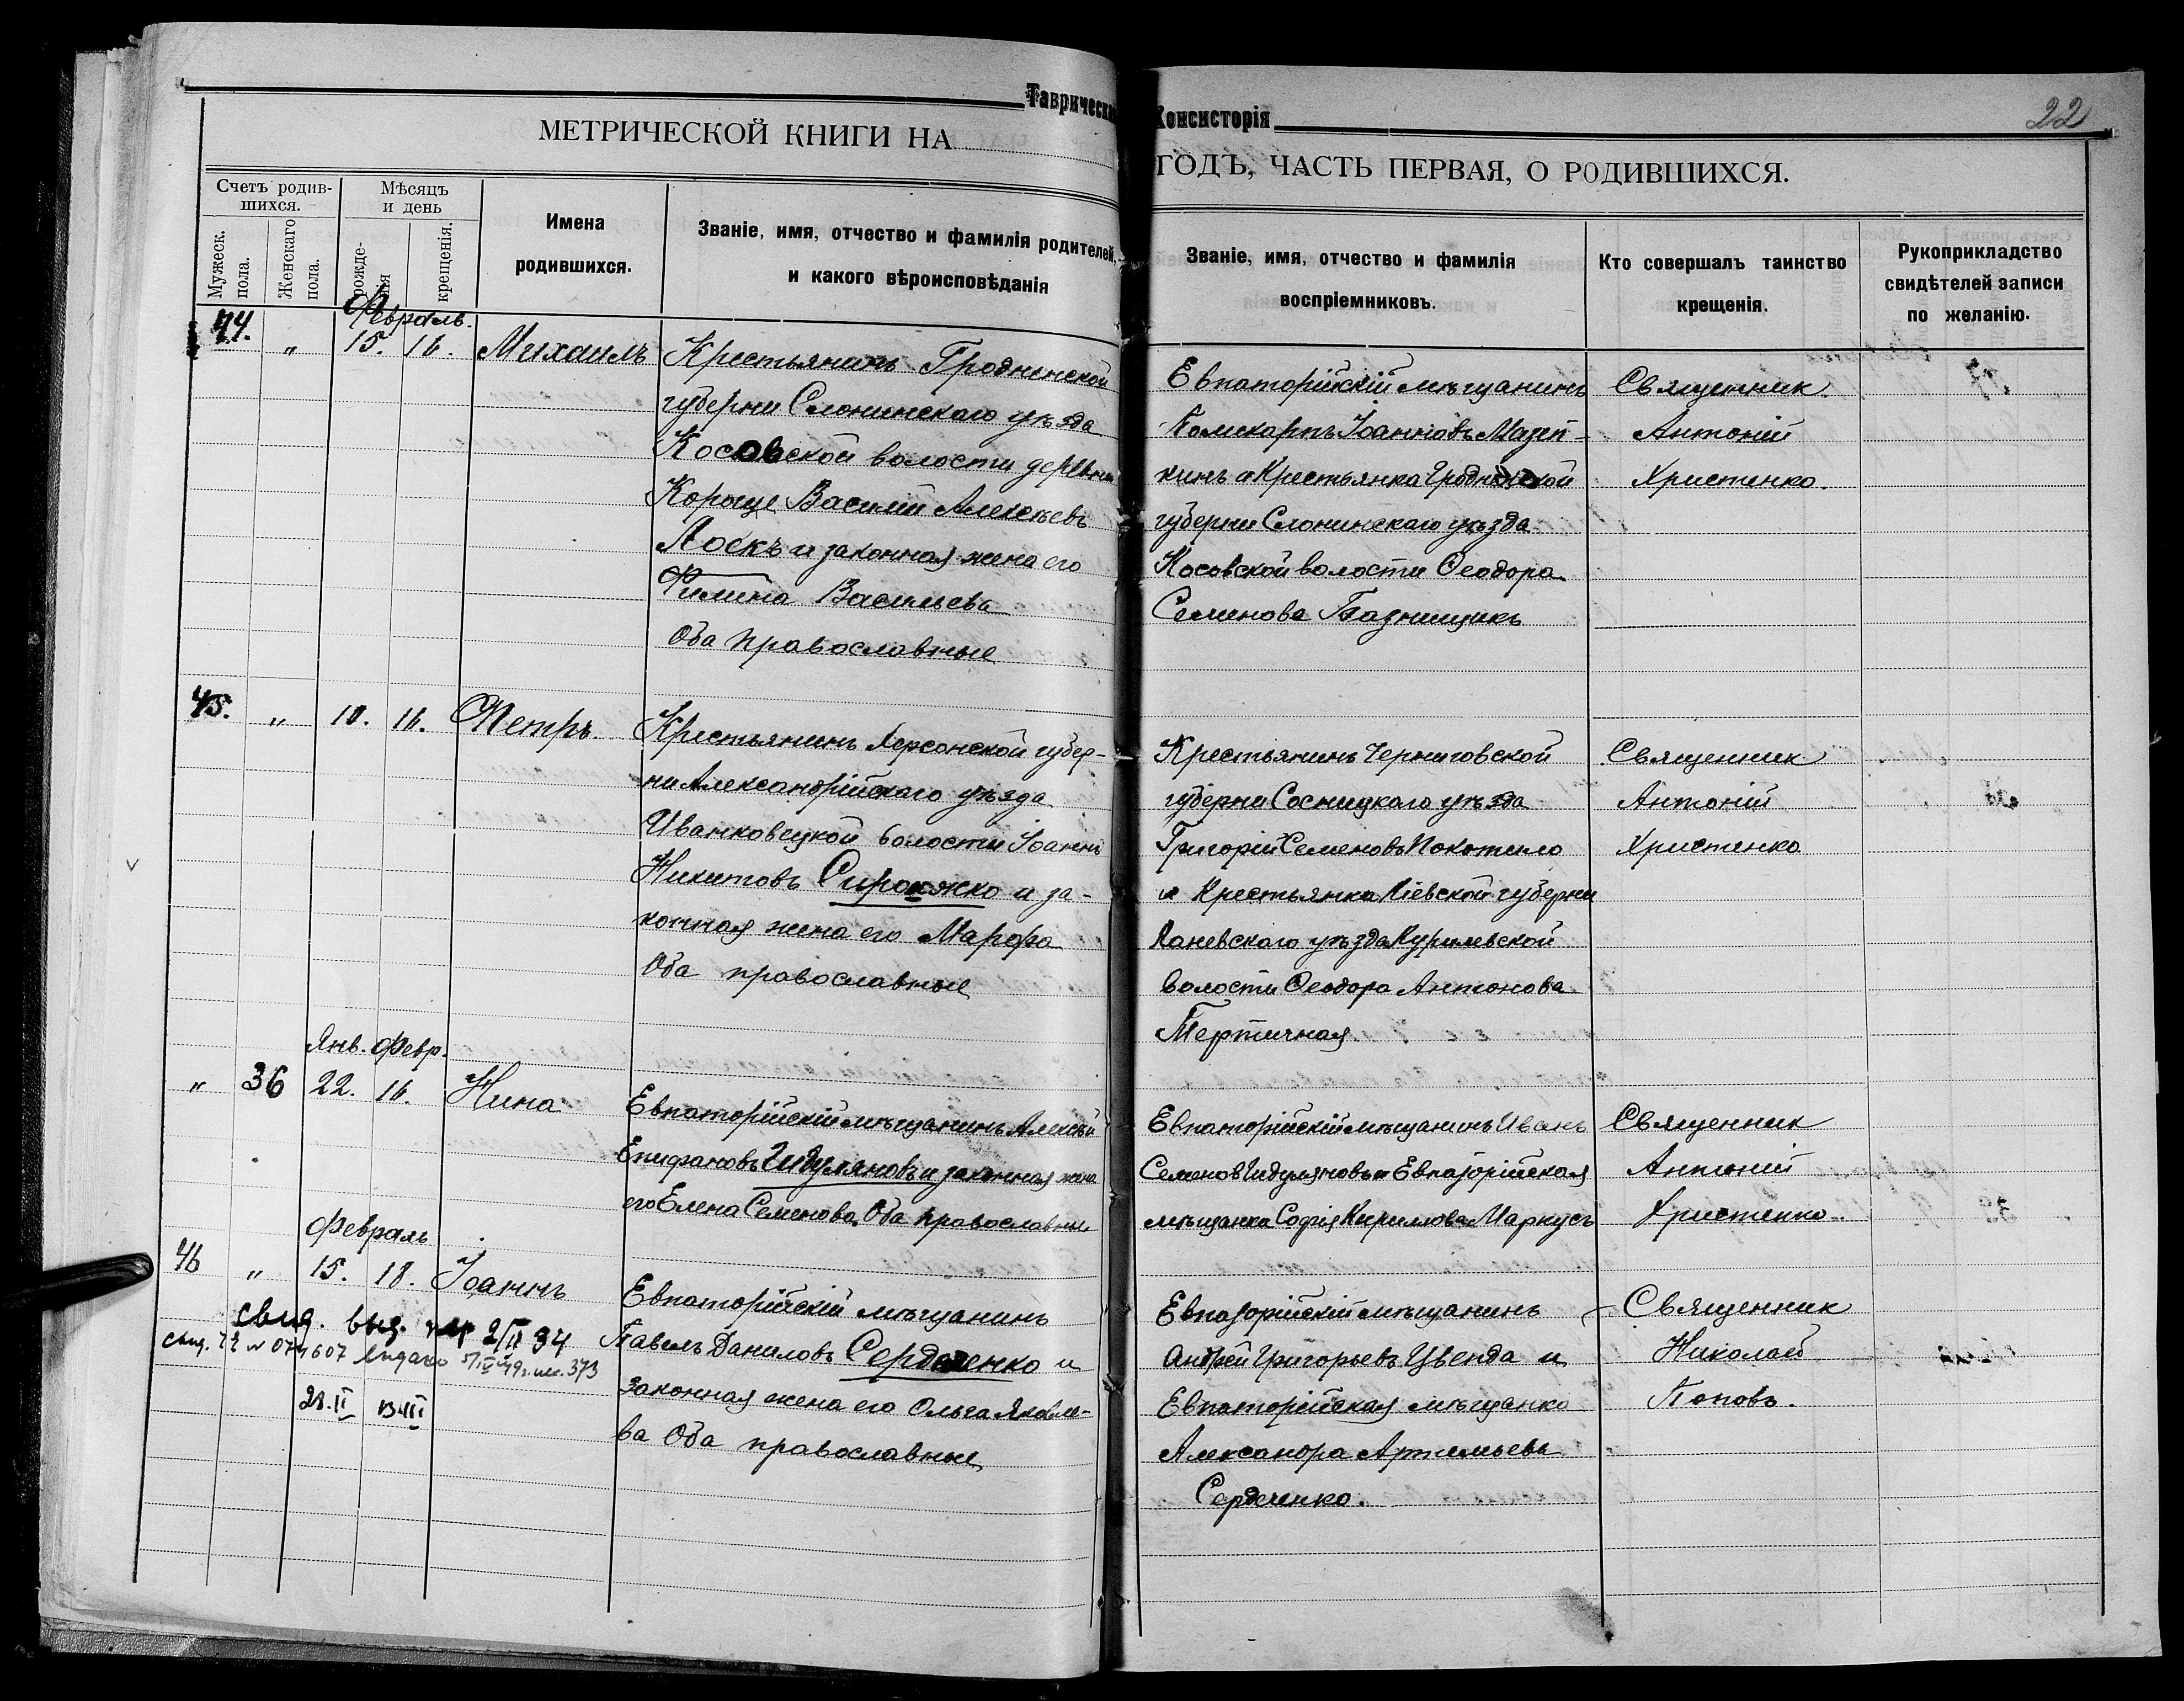 Таврическая Консисторія
22
МЕТРИЧЕСКОЙ КНИГИ НА ГОДЪ, ЧАСТЬ ПЕРВАЯ, О РОДИВШИХСЯ.
Счетъ родив-
шихся.
Мужеск.
пола.
Женскаго
пола.
Мѣсяцъ
и день
рожде-
нія
крещенія.
Имена
родившихся.
Званіе, имя, отчество и фамилія родителей,
и какого вѣроисповѣданія
Званіе, имя, отчество и фамилія
воспріемниковъ.
Кто совершалъ таинство
крещенія.
Рукоприкладство
свидѣтелей записи
по желанію.
Февраль.
44. " 15. 16. Михаилъ
Крестьянинъ Гродненской
губерни Слонинскаго уѣзда
Косовской волости деревни
Короще Василій Алексѣевъ
Лоскъ и законная жена его
Филина Васильева
Оба православные
Евпаторійскій мѣщанинъ
Поликарпъ Іоанновъ Мазеп-
кинъ и Крестьянка Гродненской
губерни Слонинскаго уѣзда
Косовской волости Ѳеодора
Семенова Базнищикъ
Священник
Антоній
Христенко.
45. " 10. 16. Петръ.
Крестьянинъ Херсонской губер-
ни Александрійскаго уѣзда
Иванковецкой волости Іоаннъ
Никитовъ Сирокжко и за-
конная жена его Марфа
Оба православные
Крестьянинъ Черниговской
губерни Сосницкаго уѣзда
Григорій Семеновъ Покотило
и Крестьянка Кіевской губерни
Каневскаго уѣзда Курилевской
волости Ѳеодора Антонова
Тертичная.
Священник
Антоній
Христенко
Янв. Февр.
" 36 22. 16. Нина
Евпаторійскій мѣщанинъ Алексѣй
Епифановъ Шидуляновъ и законная жена
его Елена Семенова, Оба православные
Евпаторійскій мѣщанинъ Иванъ
Семенов Шидуляновъ и Евпаторійская
мѣщанка Софія Кирилова Маркусъ
Священник
Антоній
Христенко.
Февраль
46 " 15. 18. Іоаннъ
свид. выд. 2/II 34
свид. 072607 выдано 49г. 373
28.II 13.III
Евпаторійскій мѣщанинъ
Павелъ Даниловъ Сердеченко и
законная жена его Ольга Яковле-
ва Оба православные
Евпаторійскій мѣщанинъ
Андрей Григорьевъ Цвенда и
Евпаторійская мѣщанка
Александра Артемьева
Сердченко.
Священник
Николай
Поповъ.